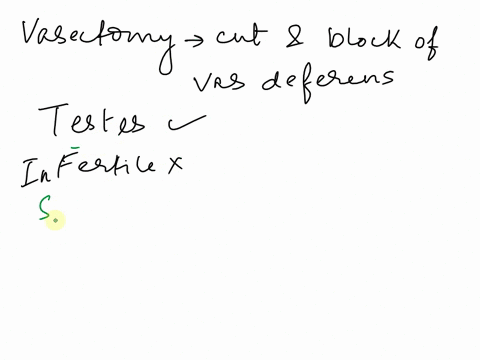 Vasectomy → cut & block of
vas deferens
Testes ✓
InFertile x
S